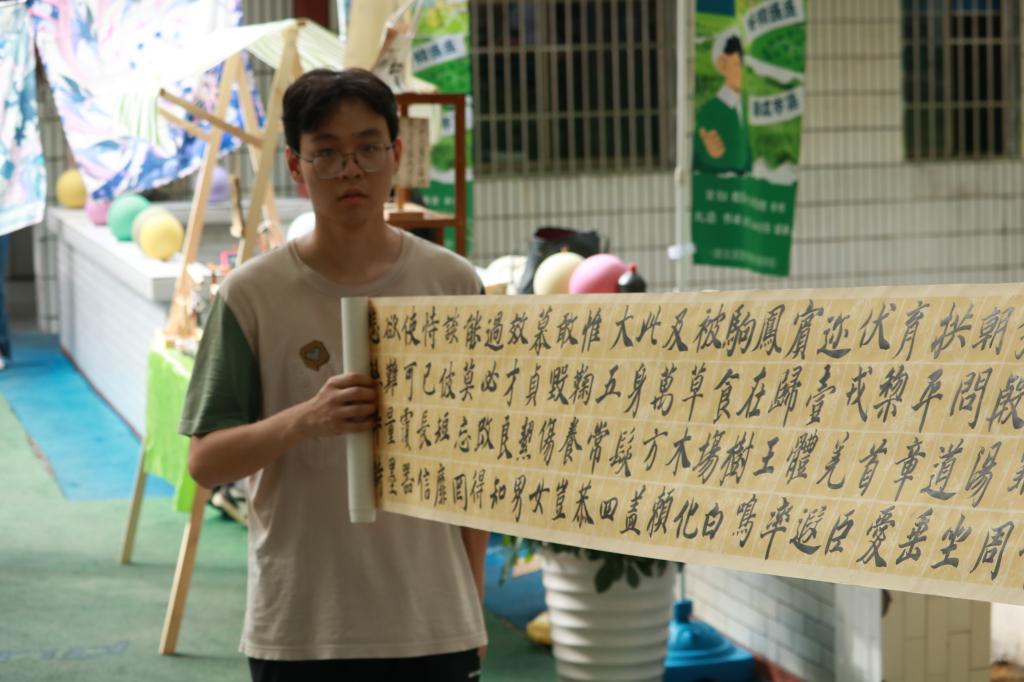 發殷湯坐
朝問道垂
拱平章愛
育黎首臣
伏戎羌遐
迩壹體率
賓歸王鳴
鳳在樹白
駒食場化
被草木賴
及萬方蓋
此身髮四
大五常恭
惟鞠養豈
敢毀傷女
慕貞烈男
效才良知
過必改得
能莫忘罔
談彼短靡
恃己長信
使可覆器
欲難量墨